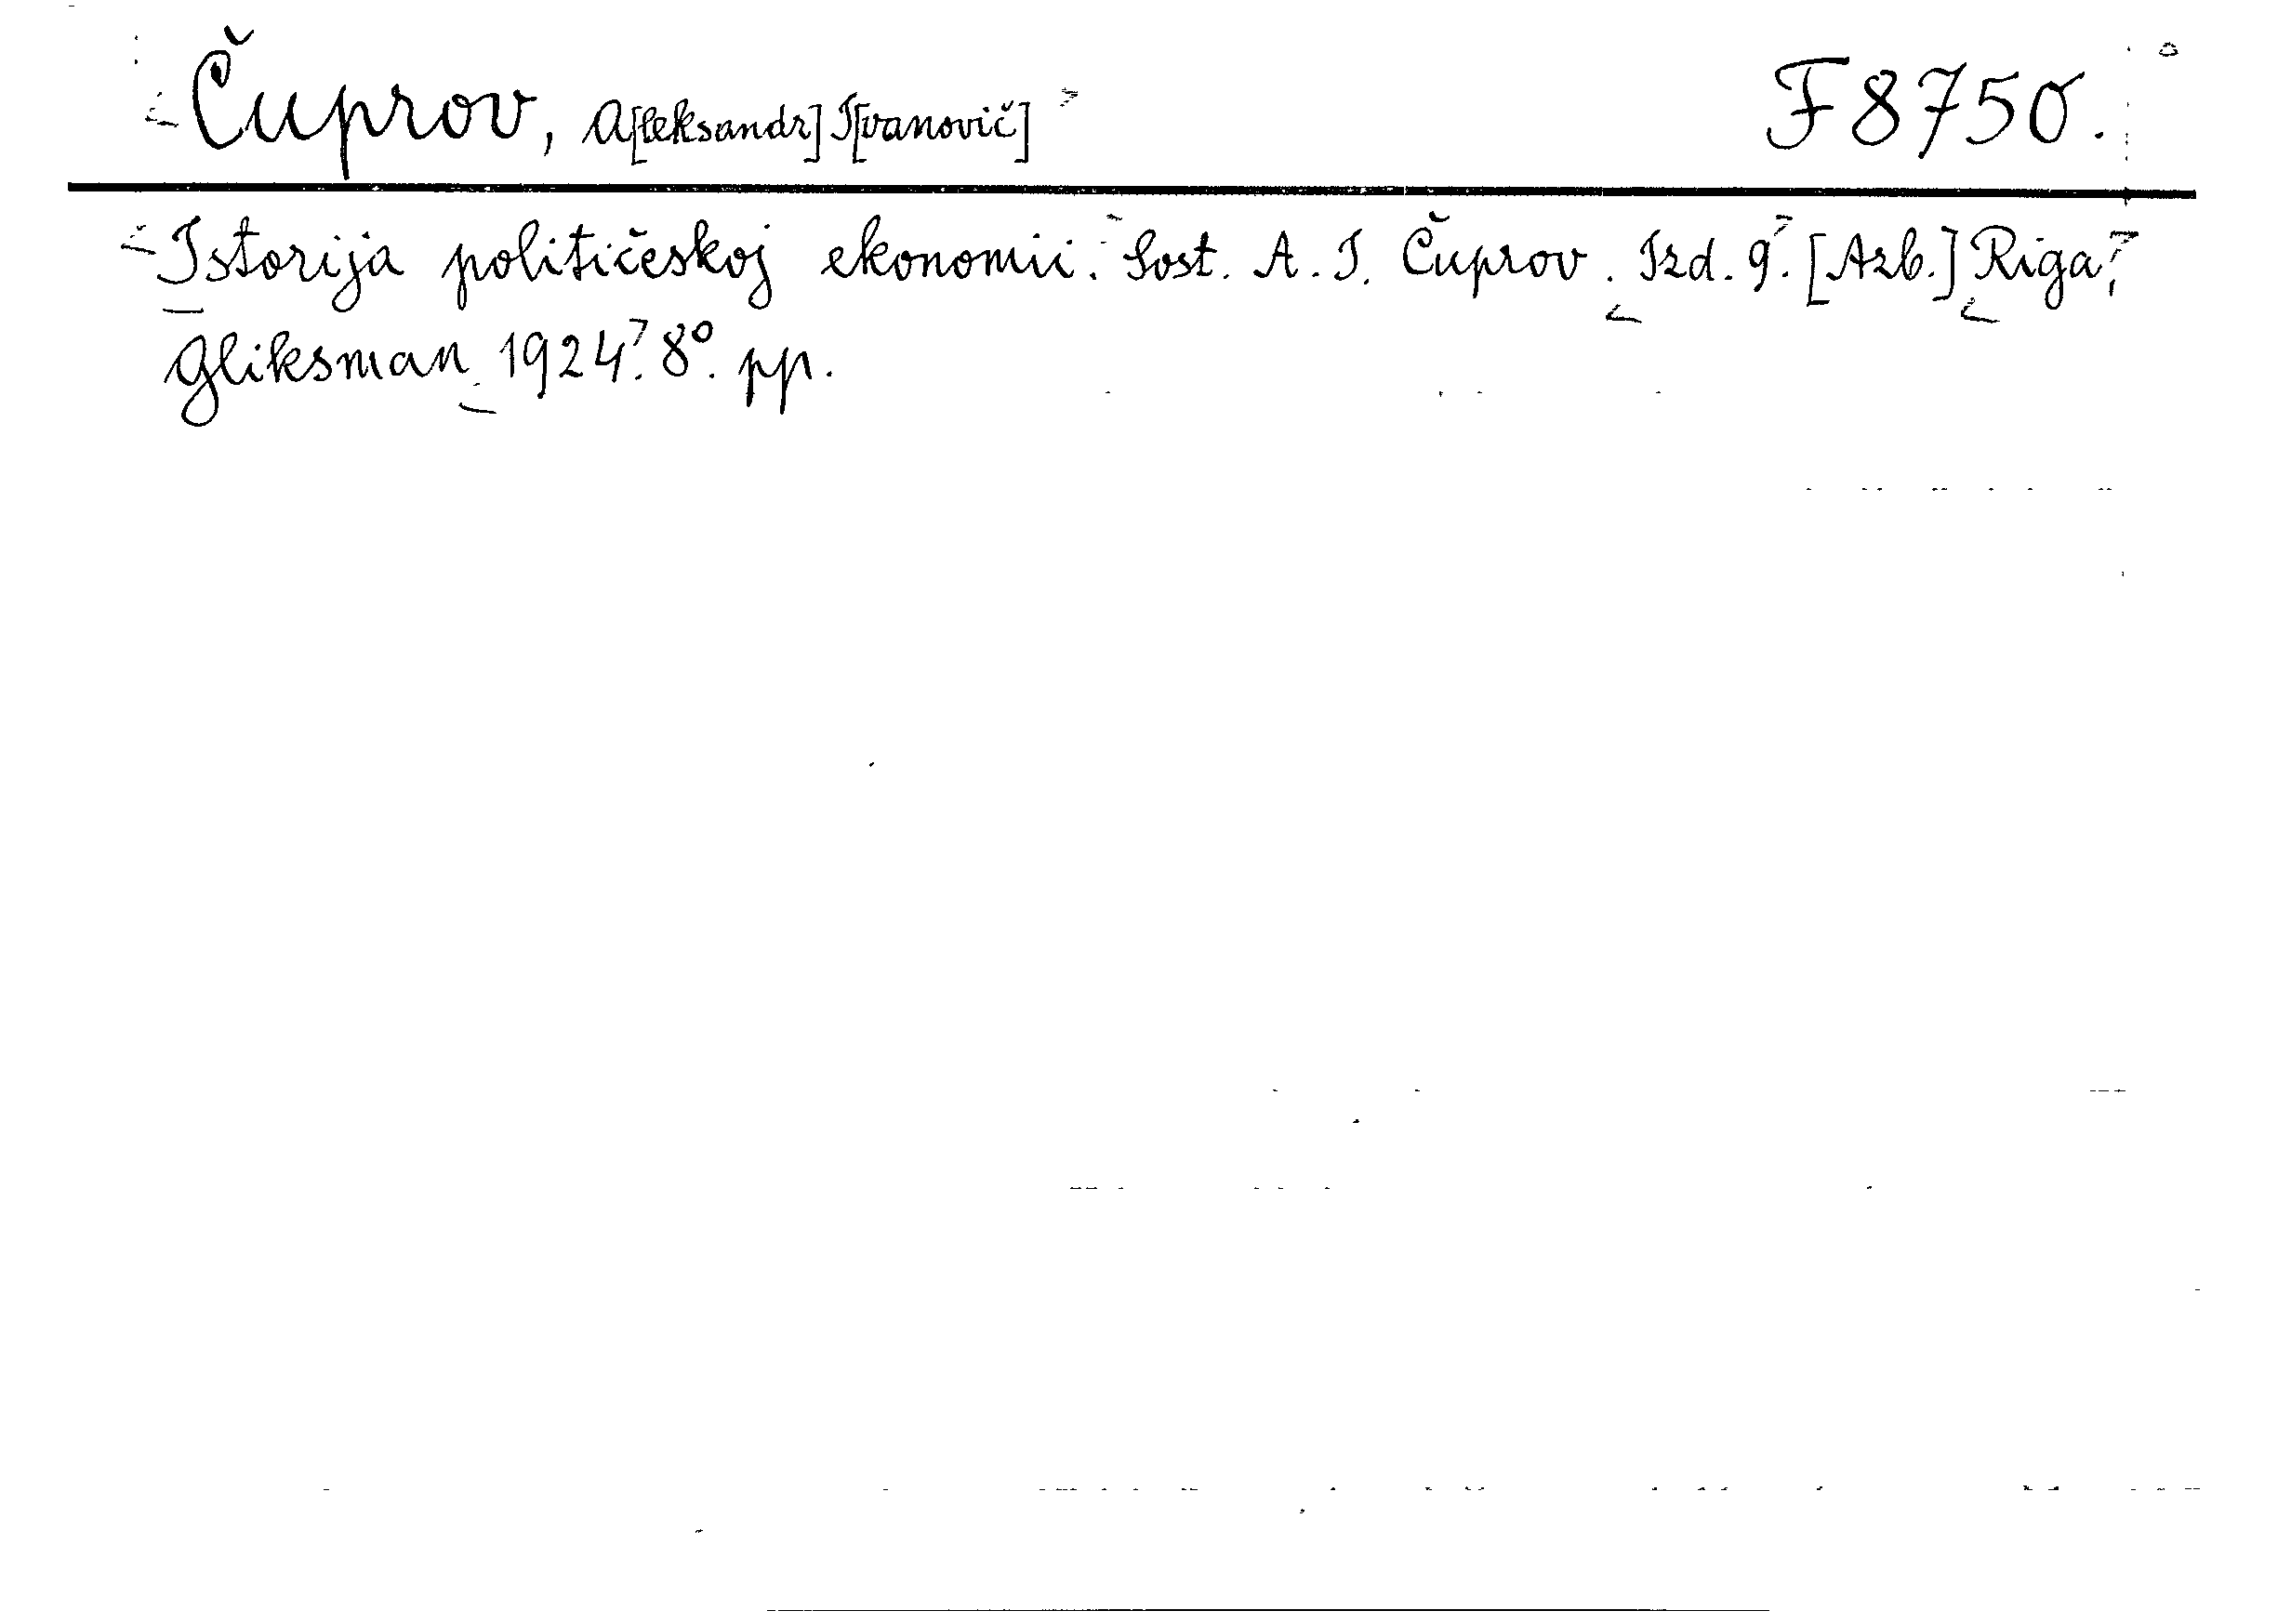 Čuprov, A[leksandr] I[vanovič] F 8750.
Istorija političeskoj ekonomii. Sost. A. I. Čuprov. Izd. 9. [Azb.] Riga,
Gliksman 1924. 8°. pp.